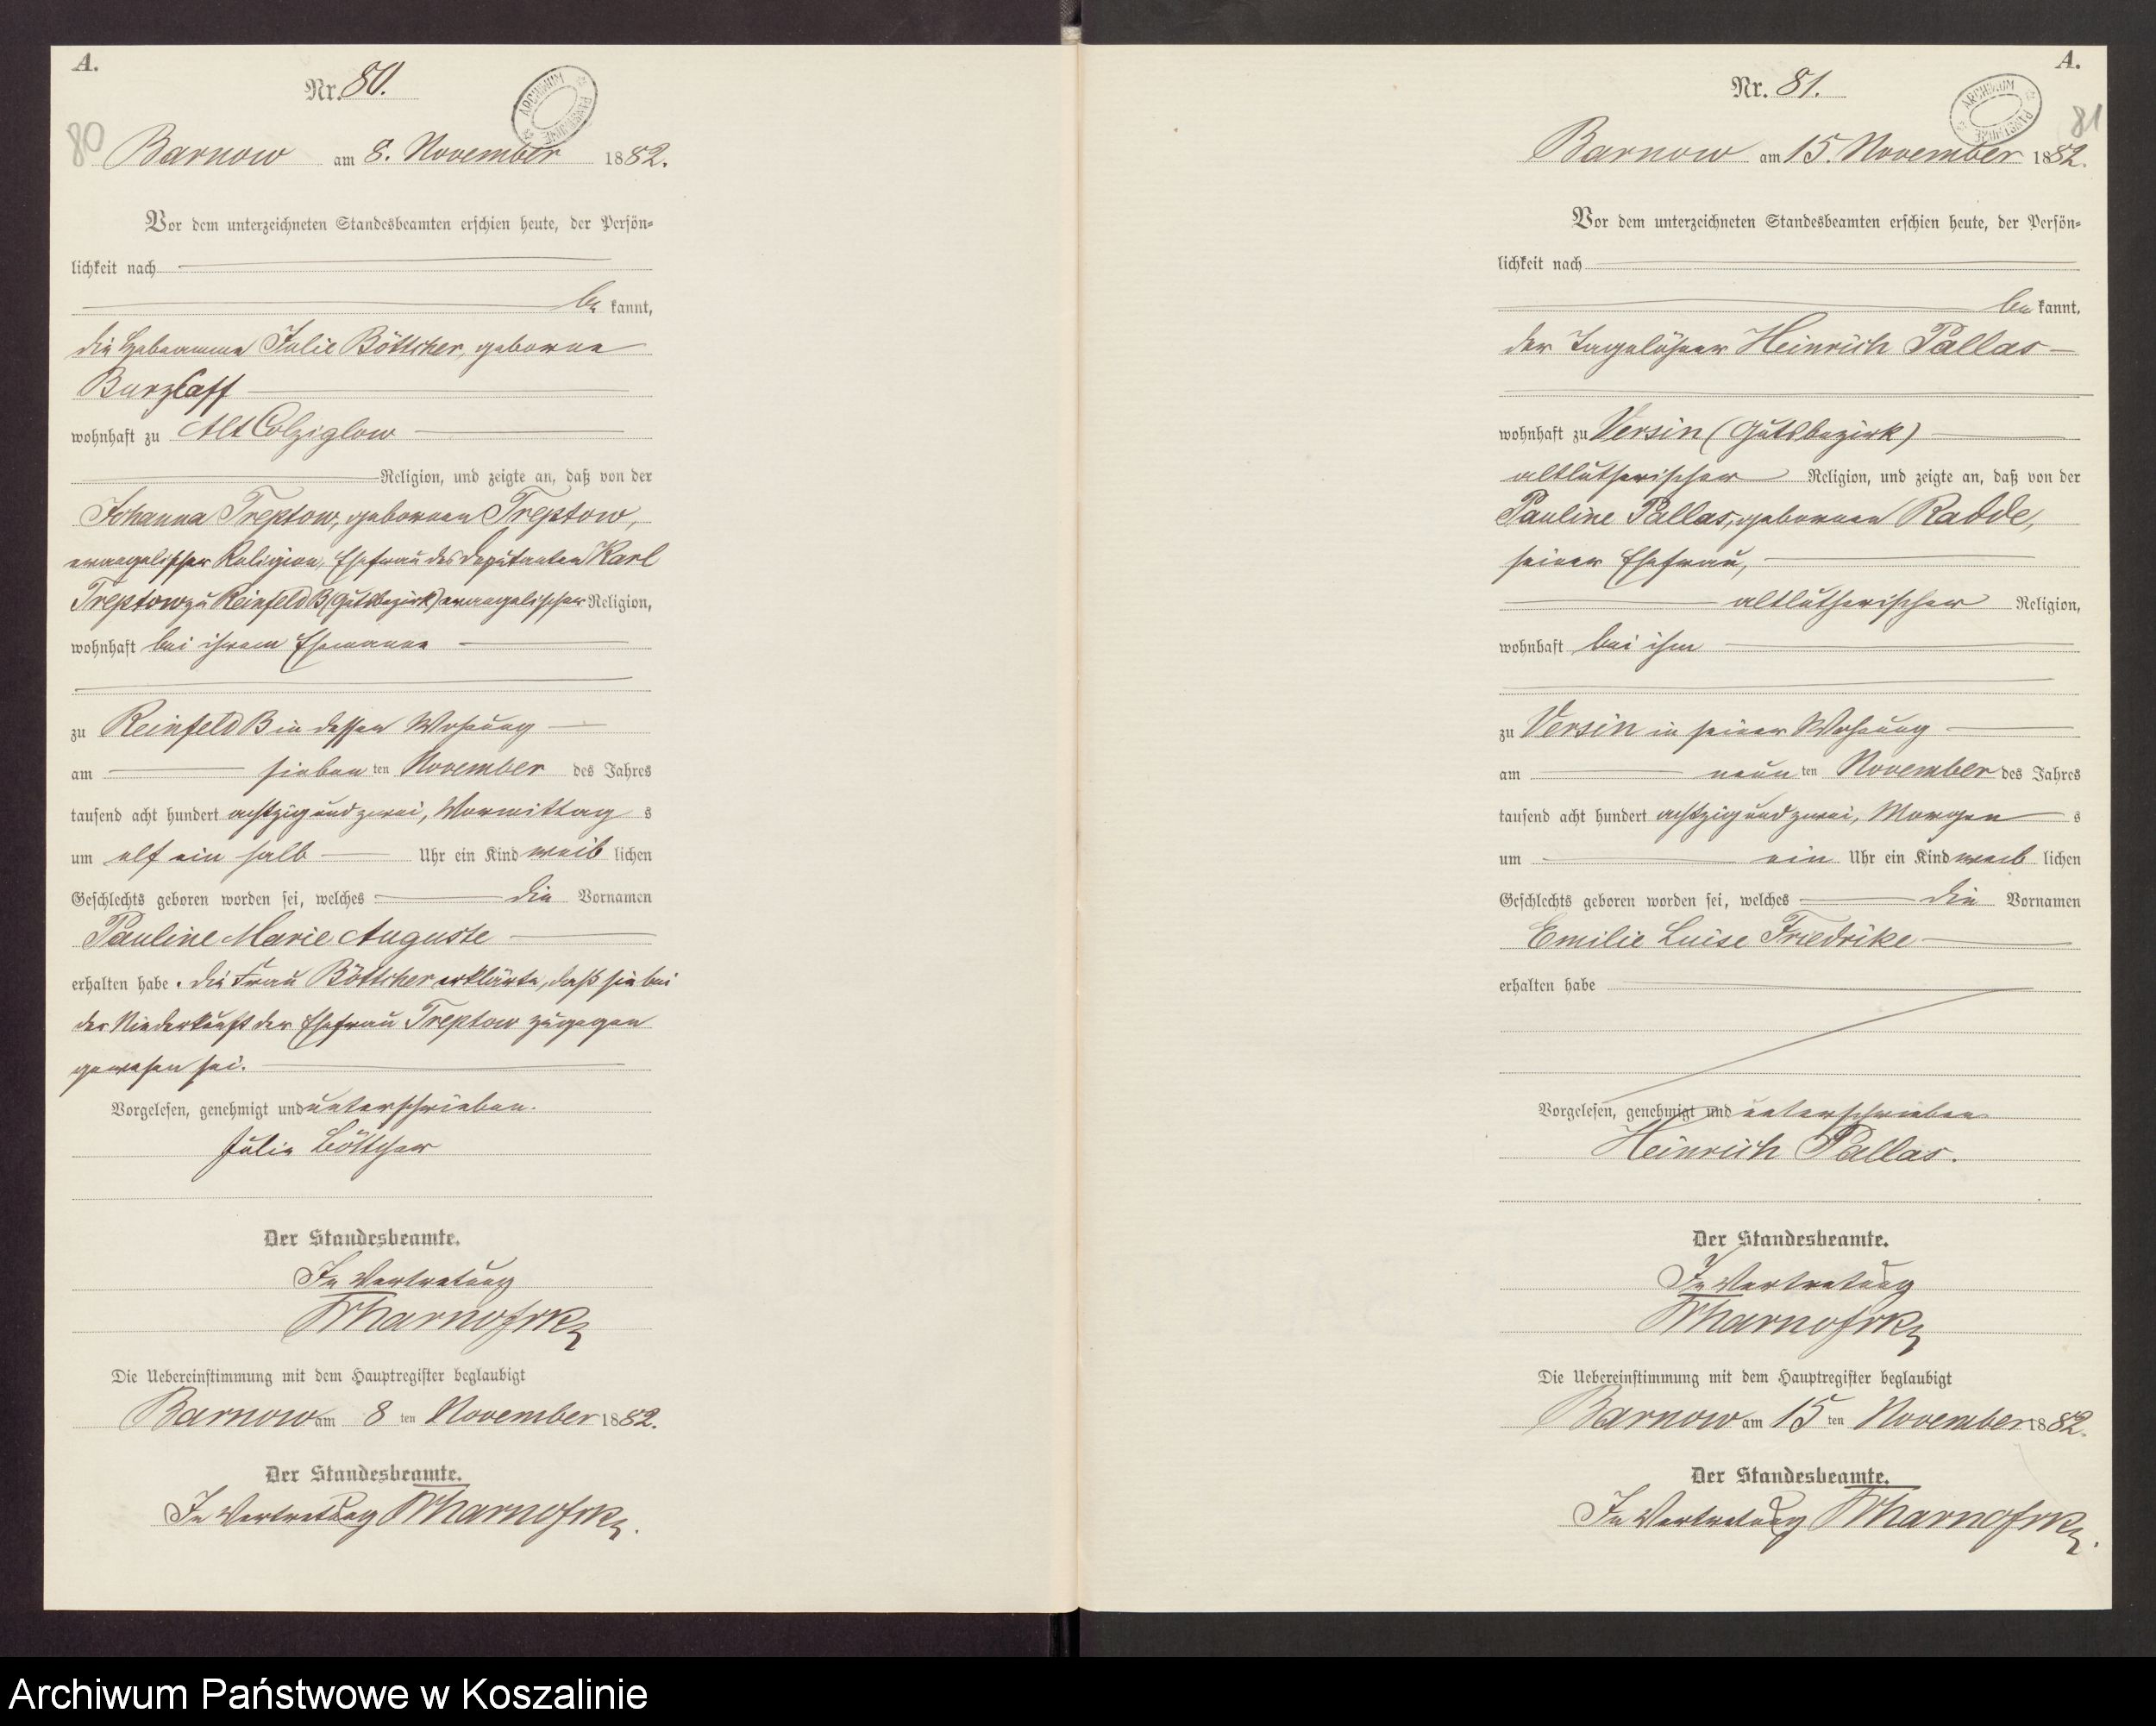 A.
Nr. 80.
80
Barnow am 8. November 1882.
Vor dem unterzeichneten Standesbeamten erschien heute, der Persön-
lichkeit nach
be kannt,
die Hebeamme Julie Böttcher, geborne
Burzlaff
wohnhaft zu Alt Colziglow
Religion, und zeigte an, daß von der
Johanna Treptow, gebornen Treptow,
evangelischer Religion, Ehefrau des Deputanten Karl
Treptow zu Reinfeld B (Gutsbezirk) evangelischer Religion,
wohnhaft bei ihrem Ehemanne
zu Reinfeld B in dessen Wohnung
am sieben ten November des Jahres
tausend acht hundert achtzig und zwei, Vormittag s
um elf ein halb Uhr ein Kind weib lichen
Geschlechts geboren worden sei, welches die Vornamen
Pauline Marie Auguste
erhalten habe. Die Frau Böttcher erklärte, daß sie bei
der Niederkunft der Ehefrau Treptow zugegen
gewesen sei.
Vorgelesen, genehmigt und unterschrieben.
Julie Böttcher
Der Standesbeamte.
In Vertretung
Die Uebereinstimmung mit dem Hauptregister beglaubigt
Barnow am 8 ten November 1882.
Der Standesbeamte.
In Vertretung
A.
Nr. 81.
81
Barnow am 15. November 1882.
Vor dem unterzeichneten Standesbeamten erschien heute, der Persön-
lichkeit nach
be kannt,
der Tagelöhner Heinrich Pallas
wohnhaft zu Versin (Gutsbezirk)
altlutherischer Religion, und zeigte an, daß von der
Pauline Pallas, gebornen Radde,
seiner Ehefrau,
altlutherischer Religion,
wohnhaft bei ihm
zu Versin in seiner Wohnung
am neun ten November des Jahres
tausend acht hundert achtzig und zwei, Morgen s
um ein Uhr ein Kind weib lichen
Geschlechts geboren worden sei, welches die Vornamen
Emilie Luise Friedrike
erhalten habe
Vorgelesen, genehmigt und unterschrieben
Heinrich Pallas.
Der Standesbeamte.
In Vertretung
Die Uebereinstimmung mit dem Hauptregister beglaubigt
Barnow am 15 ten November 1882.
Der Standesbeamte.
In Vertretung
Archiwum Państwowe w Koszalinie